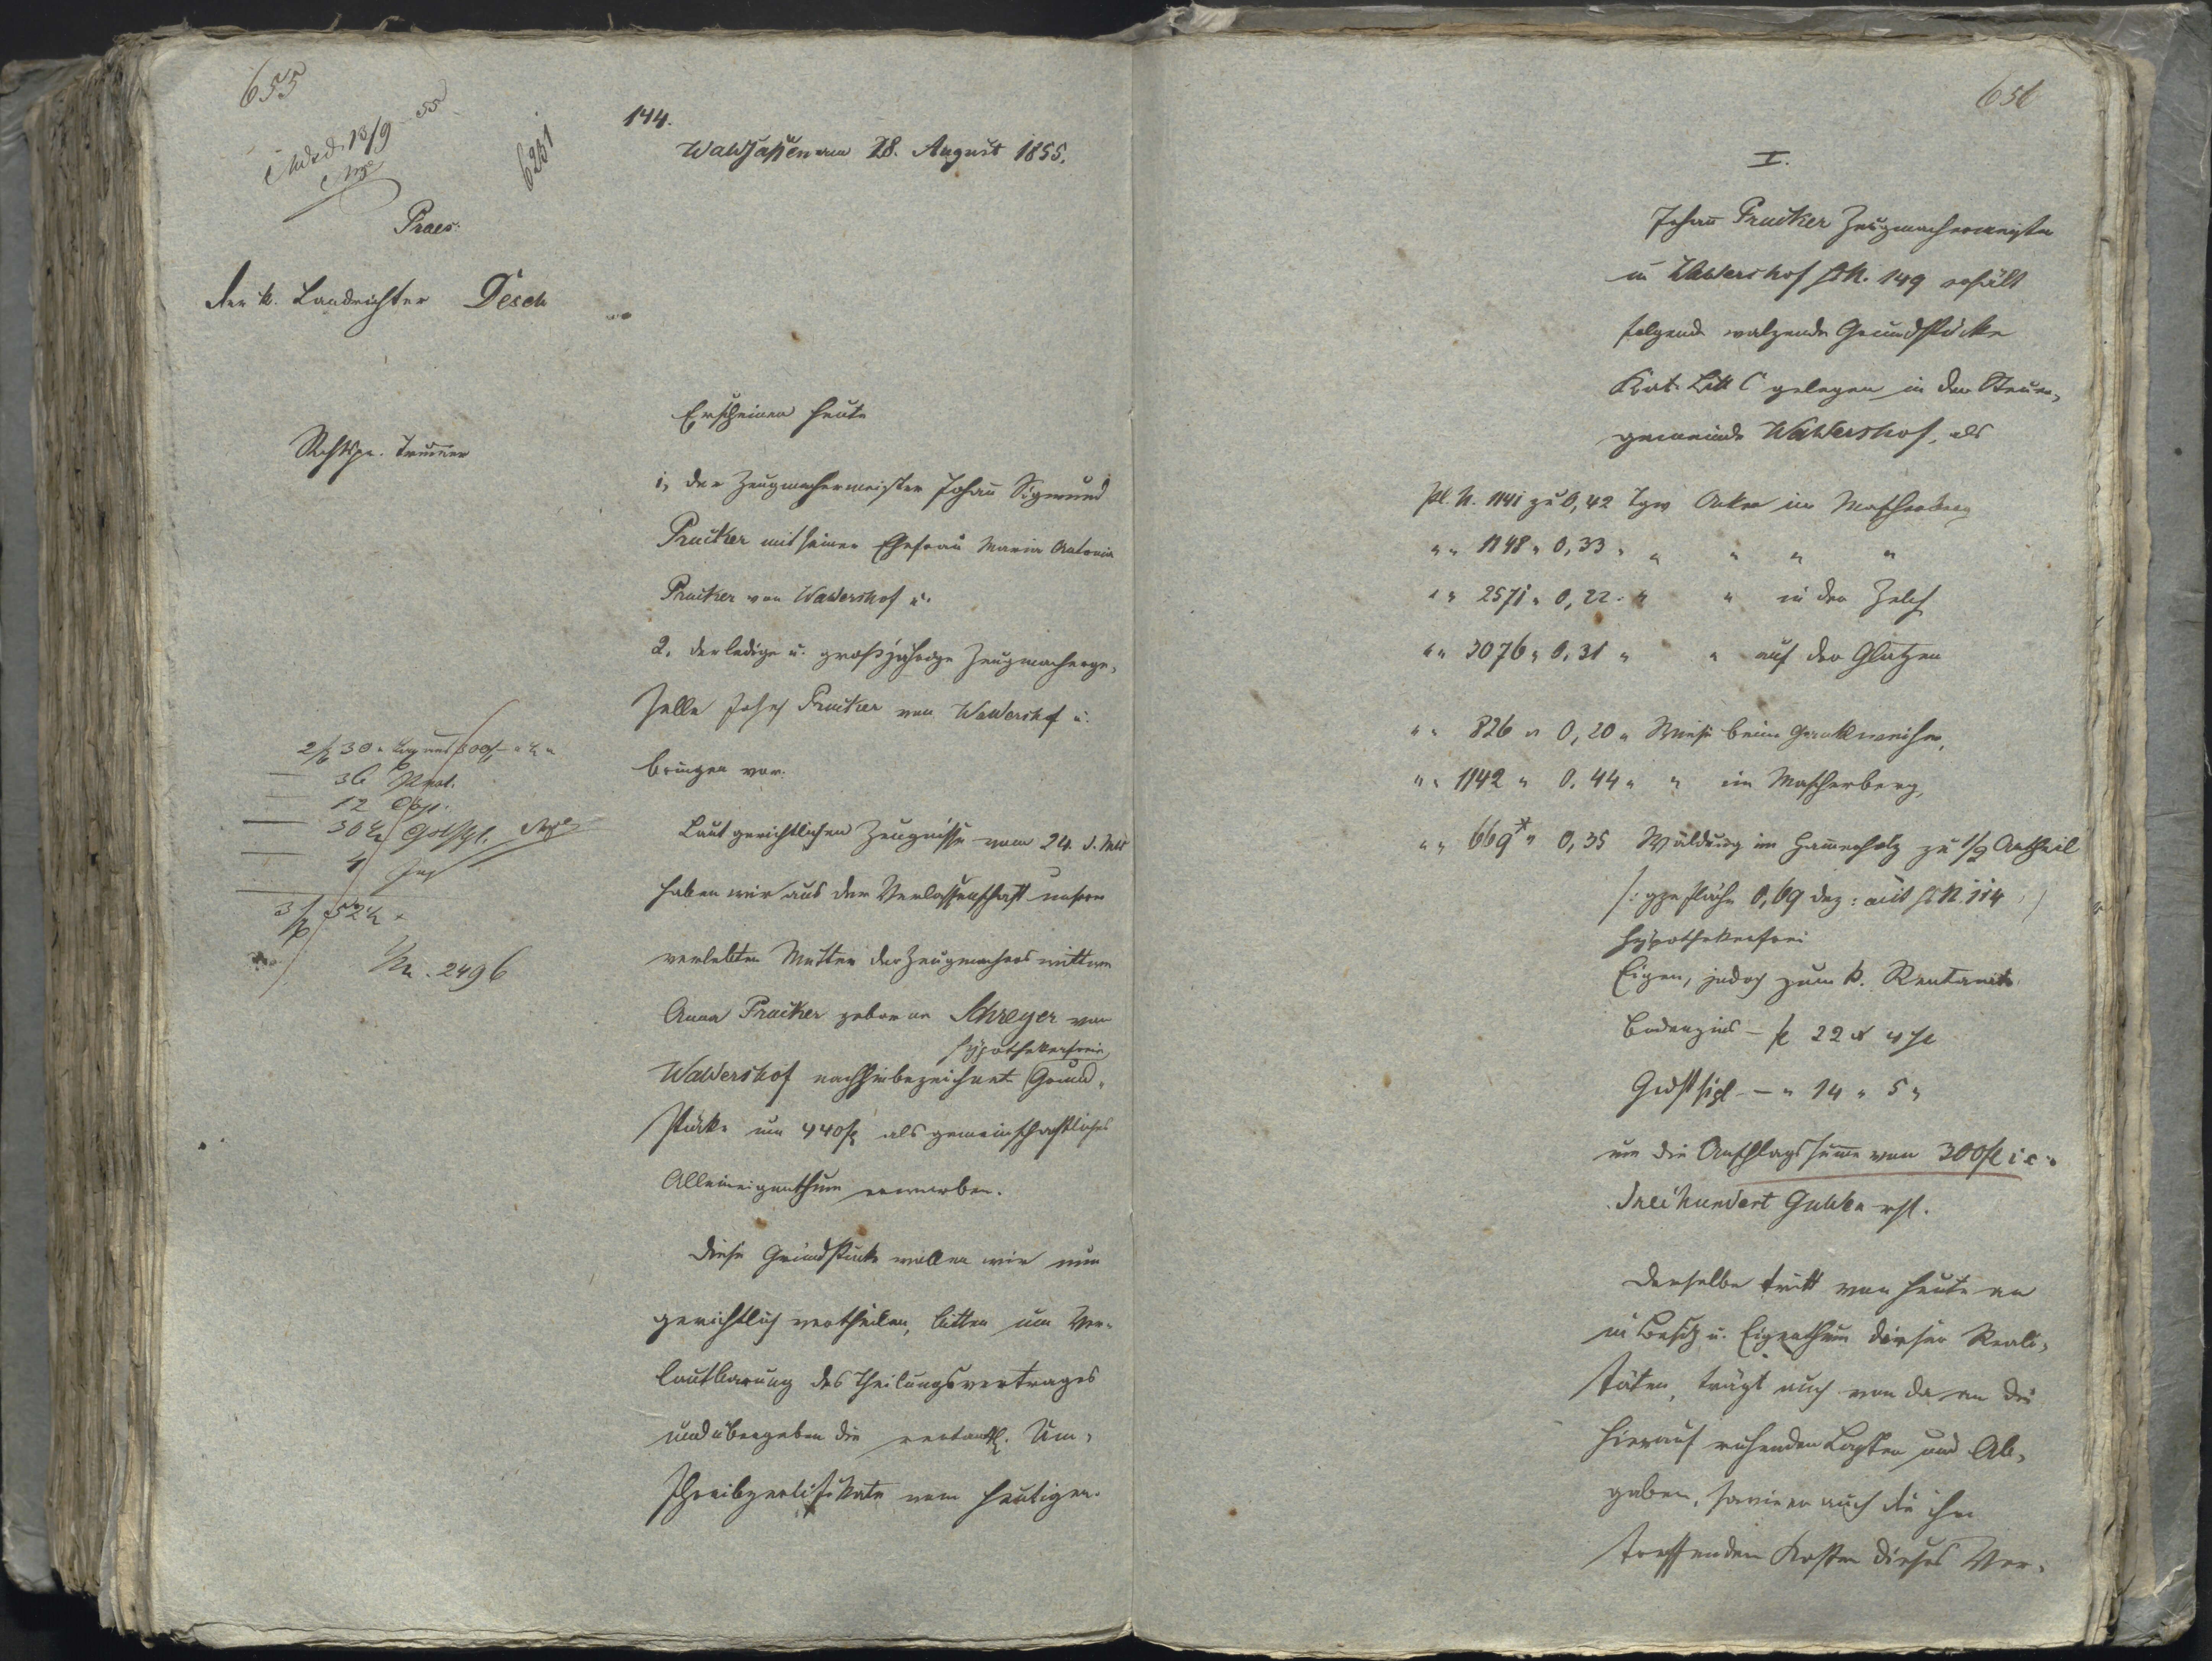 655
13/9 55
6231
Praes:
der k. Landrichter Desch
Rchtspr.
2 f 30 x Tax aus 300 f
36 Prot.
12 Cop.
30 x
4
3 f 52 x
Nr. 2496
144.
Waldsassen am 28. August 1855.
Erscheinen heute
1, der Zeugmachermeister Johañ Sigmund
Prucker mit seiner Ehefrau Maria Antonia
Prucker von Waldershof u.
2. der ledige u. großjährige Zeugmacherge-
selle Josef Prucker von Waldershof u.
bringen vor:
Laut gerichtlichen Zeugnisse vom 24. d. Mts
haben wir aus der Verlassenschaft unsrer
verlebten Mutter der Zeugmachers wittwe
Anna Prucker geborne Schreyer von
hypothekenfreie
Waldershof nachhinbezeichnete Grund-
stücke um 440 f als gemeinschaftliches
Alleineigenthum erworben.
Diese Grundstücke wollen wir nun
gerichtlich vertheilen, bitten um Ver-
lautbarung des Theilungsvertrages
und übergeben die rentamtl. Um-
schreibzertifikate vom Heutigen.
656
I.
Johañ Prucker Zeugmachermeister
in Waldershof Hs N. 149 erhält
folgende walzende Grundstücke
Kat. Litt C gelegen in der Steuer-
gemeinde Waldershof, als
Pl. N. 1141 zu 0,42 Tgw Acker im Mascherberg
" " 1148 " 0,33 " " " " "
" " 2571 " 0,22 " " in der Zelch
" " 3076 " 0,31 " " auf der Glutzen
" " 826 " 0,20 " Wiese beim
" " 1142 " 0,44 " " im Mascherberg,
" " 669* " 0,35 Waldung im Hammerholz zu 1/2 Antheil
/: gze Fläche 0,69 dez: mit Hs N. 114 :/
hypothekenfrei
Eigen, jedoch zum k. Rentamte
Bodenzins – f 22 x 4 hl
– " 14 " 5 "
um die Anschlagssum̃e von 300 f i. e.
Dreihundert Gulden rhl.
Derselbe tritt von heute an
in Besitz u. Eigenthum dieser Reali-
täten, trägt auch von da an die
hierauf ruhenden Lasten und Ab-
gaben, sowie er auch die ihn
treffenden Kosten dieses Ver-